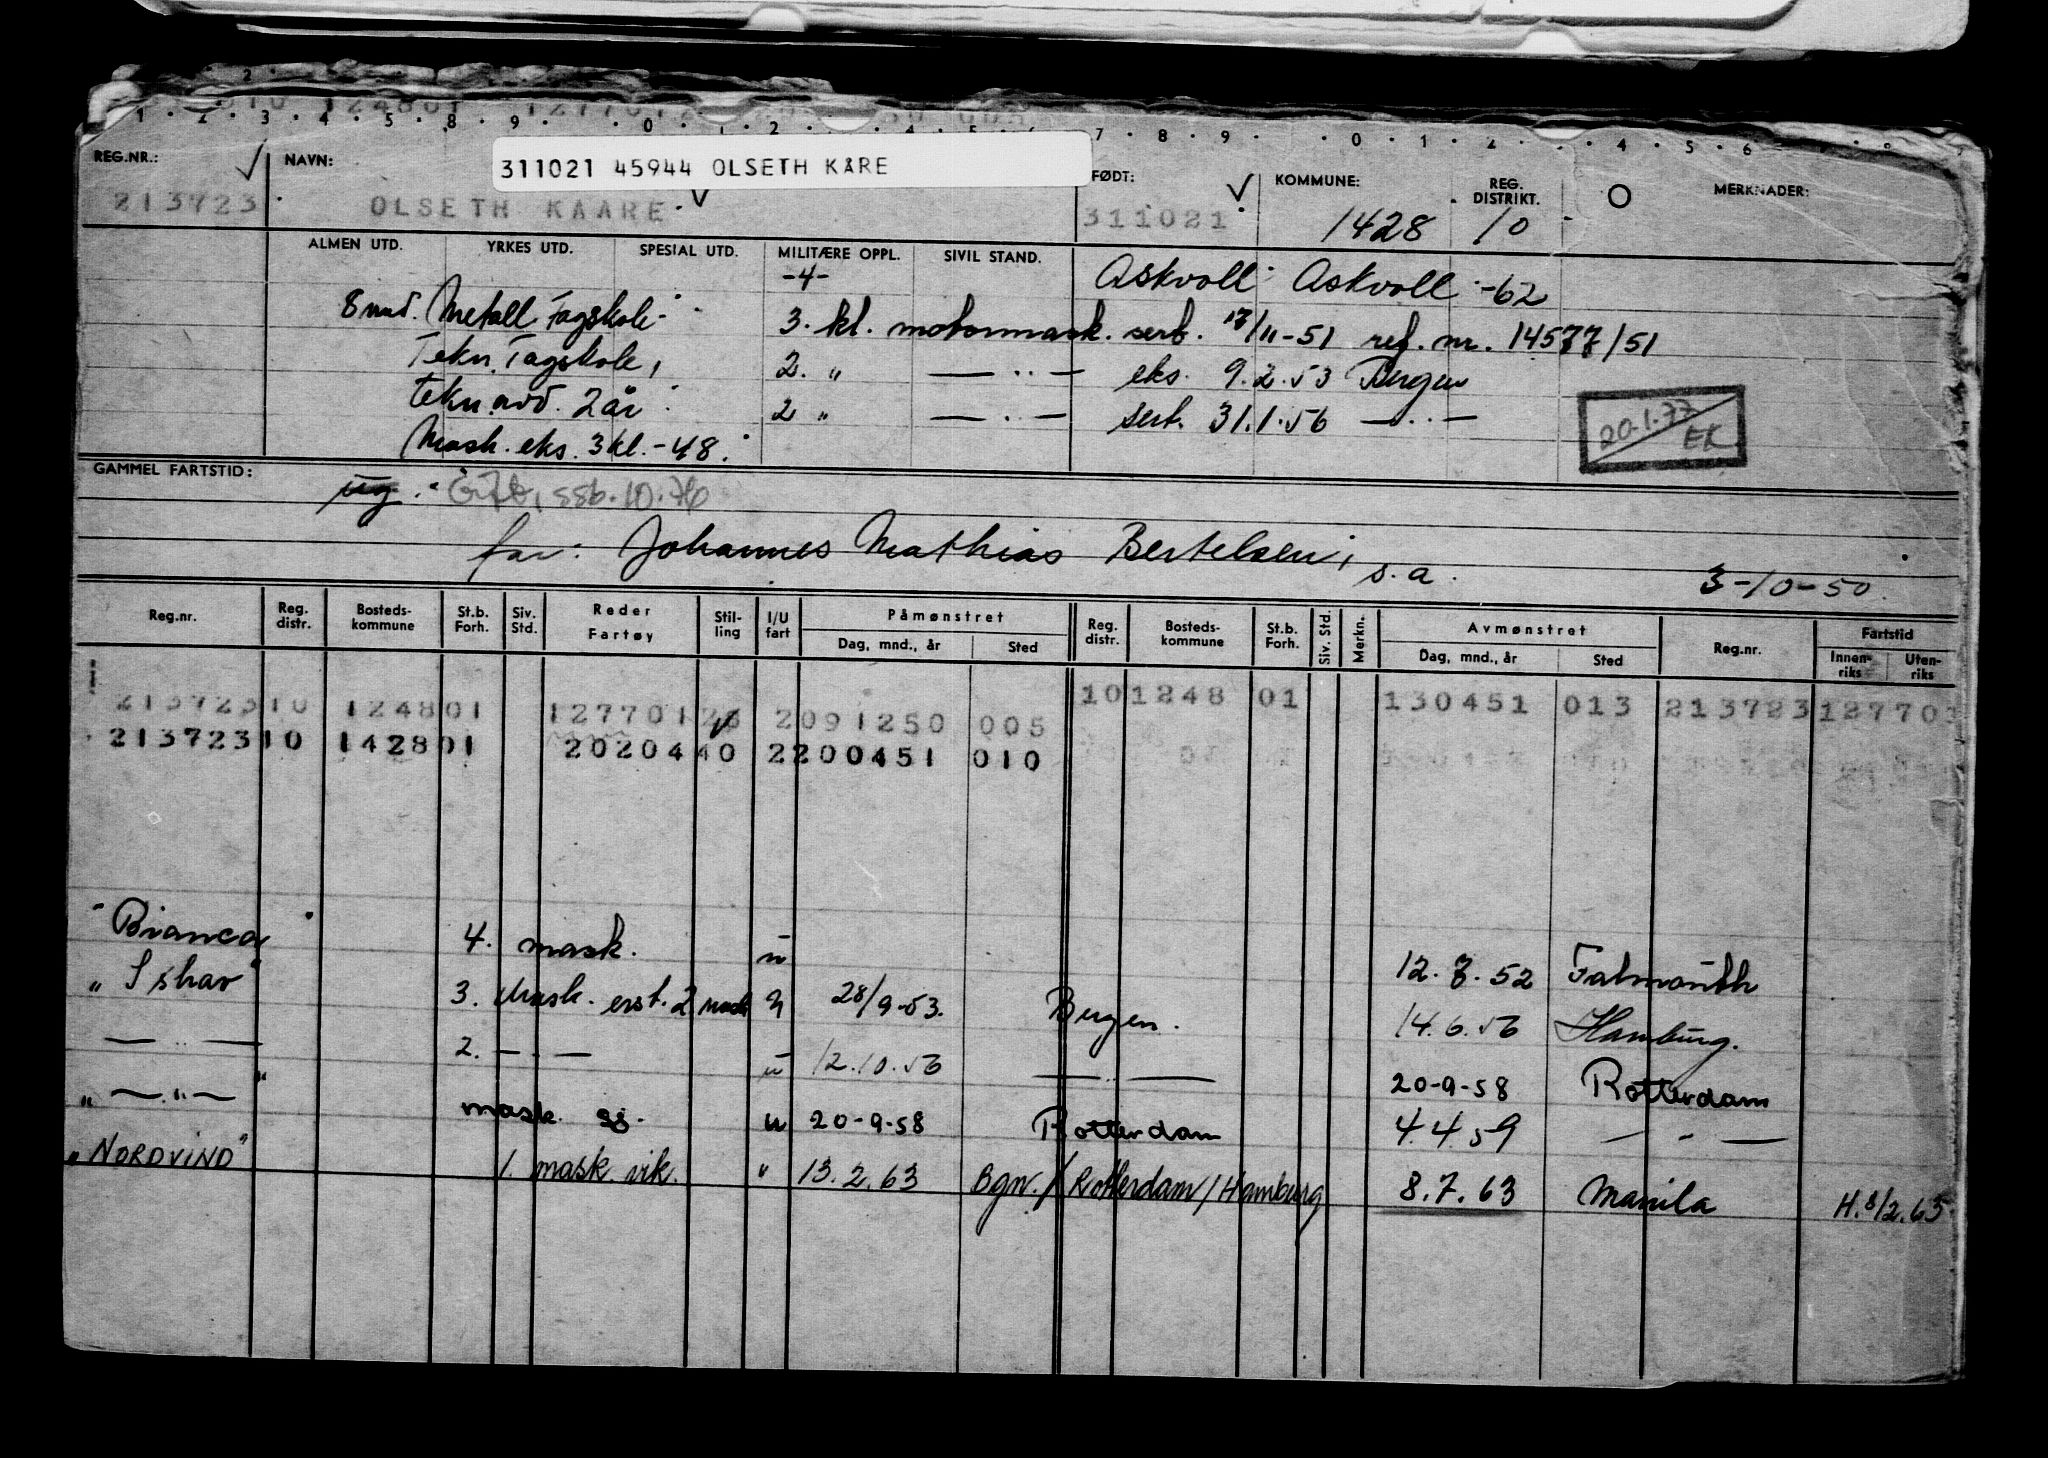 311021 45944 OLSETH KÅRE
REG.NR.: NAVN: FØDT: KOMMUNE: REG. DISTRIKT. MERKNADER:
213723 OLSETH KAARE 311021 1428 10
ALMEN UTD. YRKES UTD. SPESIAL UTD. MILITÆRE OPPL. SIVIL STAND.
-4- Askvoll Askvoll -62
8 mnd. Metall Fagskole 3. kl. motormask. sert. 17/11-51 ref. nr. 14577/51
Tekn. Fagskole, 2. " — " — eks. 9.2.53 Bergen
tekn. avd. 2 år 2 " — " — sert. 31.1.56 — " —
Mask. eks. 3 kl. -48.
20-1-77 EK
GAMMEL FARTSTID:
ug. ssb. 10.76
far: Johannes Mathias Bertelsen, s.a. 3-10-50.
Reg.nr. Reg. distr. Bosteds-kommune St.b. Forh. Siv. Std. Reder Fartøy Stil-ling I/U fart Påmønstret Dag, mnd., år Sted Reg. distr. Bosteds-kommune St.b. Forh. Siv. Std. Merkn. Avmønstret Dag, mnd., år Sted Reg.nr. Fartstid Innen-riks Uten-riks
21372310 124801 127701 2091250 005 101248 01 130451 013 213723 12770
21372310 142801 2020440 2200451 010
"Bianca" 4. mask. u 12.7.52 Falmouth
"Ishav" 3. Mask. erst. 2 mask u 28/9-53. Bergen. 14.6.56 Hamburg.
— " — 2. — " — u 12.10.56 — " — 20-9-58 Rotterdam
" — " — " mask. sj. u 20-9-58 Rotterdam 4.4.59 — " —
"NORDVIND" 1. mask. vik. " 13.2.63 Bgn./Rotterdam/Hamburg 8.7.63 Manila H. 8/2.65